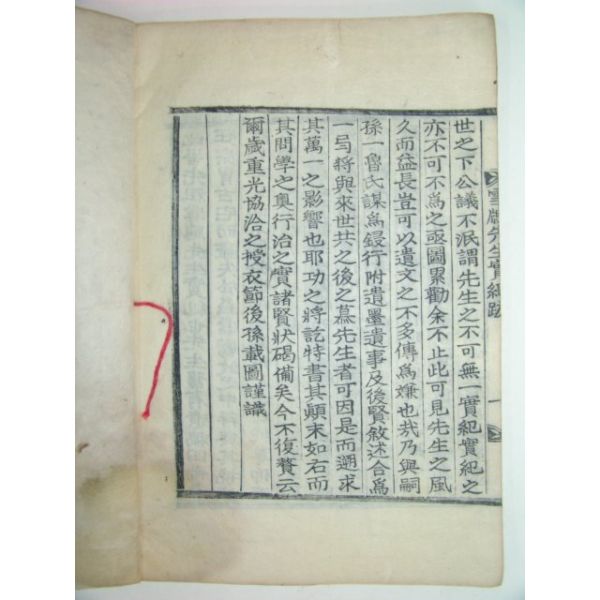 世之下公議不泯謂先生之不可無一實紀實紀之
亦不可不爲之亟圖累勸余不止此可見先生之風
久而益長豈可以遺文之不多傳爲嫌也哉乃與嗣
孫一魯氏謀爲鋟行附遺墨遺事及後賢敘述合爲
一弓將與來世共之後之慕先生者可因是而遡求
其萬一之影響也耶功之將訖特書其顚末如右而
其問學之奧行治之實諸賢狀碣備矣今不復贅云
爾歲重光協洽之授衣節後孫載圖謹識
先生實紀跋
一